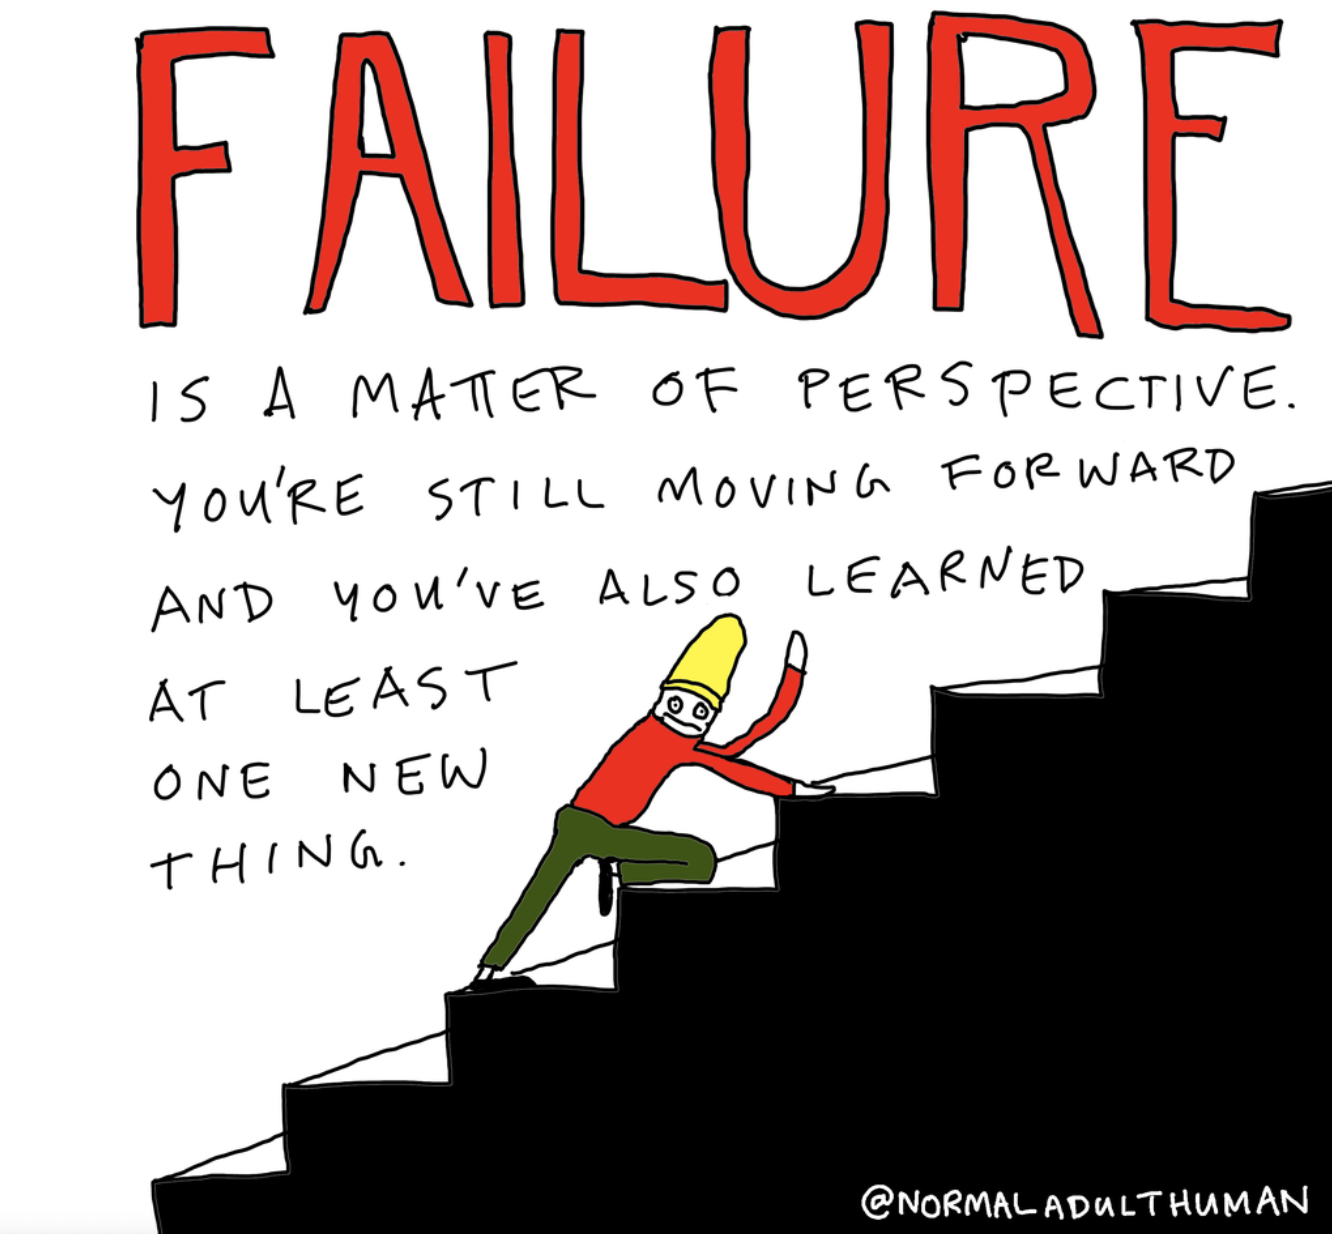 FAILURE
IS A MATTER OF PERSPECTIVE.
YOU'RE STILL MOVING FORWARD
AND YOU'VE ALSO LEARNED
AT LEAST
ONE NEW
THING.
@NORMALADULTHUMAN